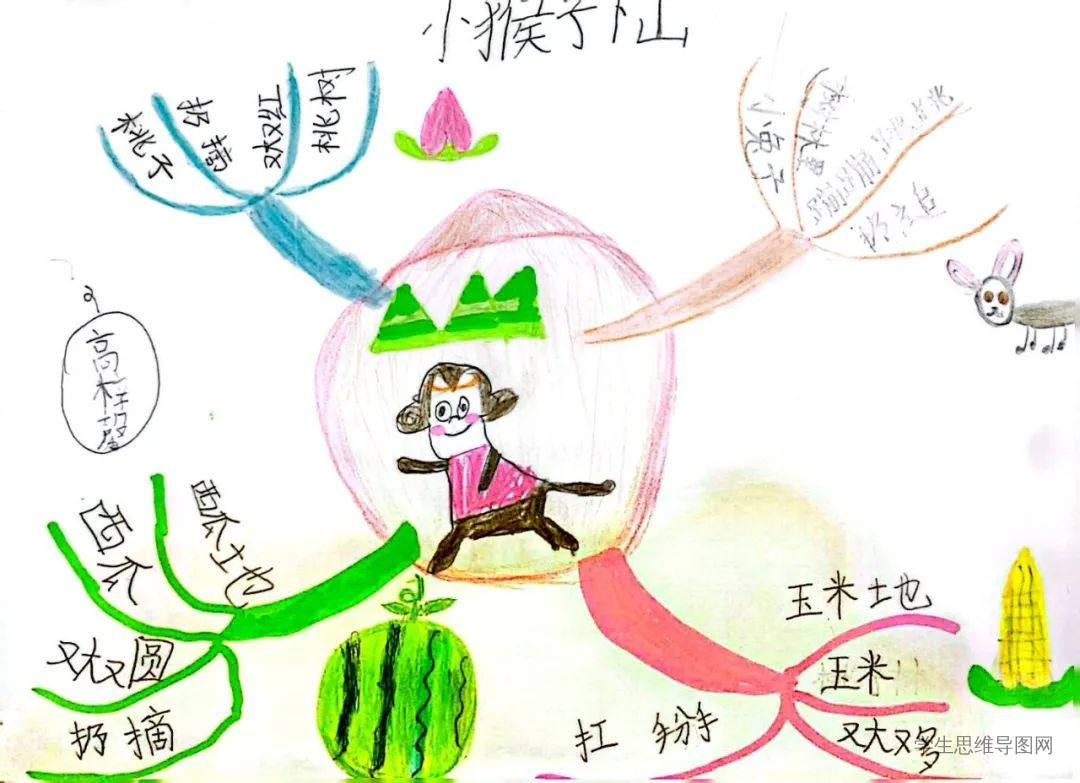 小猴子下山
桃子
扔摘
又大又红
桃树
小兔子
树林里
蹦蹦跳跳
西瓜地
西瓜
又大又圆
扔 摘
玉米地
玉米
又大又多
扛 掰
学生思维导图网